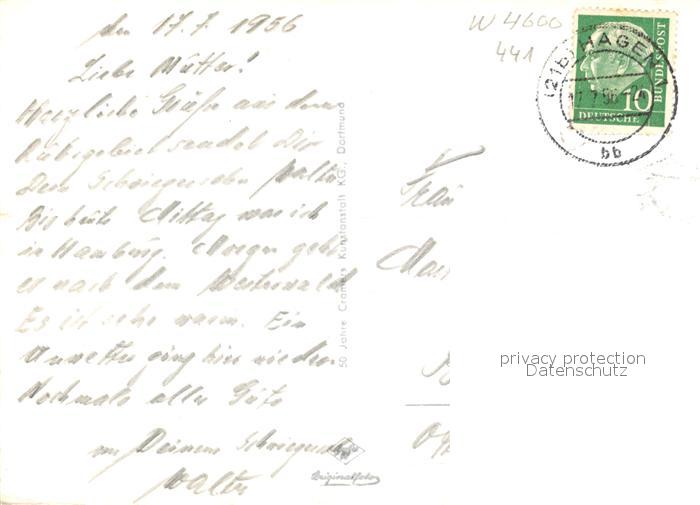 den 17.7.1956
Liebe Mutter!
Herzliche Grüße aus dem
Ruhrgebiet sendet Dir
Dein Schwiegersohn Walter
Bis heute Mittag war ich
in Hamburg. Morgen geht
es nach dem Westerwald
Es ist sehr warm. Ein
Unwetter ging hier nieder.
Nochmals alles Gute
von Deinem Schwiegersohn
Walter
50 Jahre Cramers Kunstanstalt KG., Dortmund
Originalfoto
W 4600
441
(21b) HAGEN 1
17.7.56
bb
10
DEUTSCHE
BUNDESPOST
Frau
privacy protection
Datenschutz